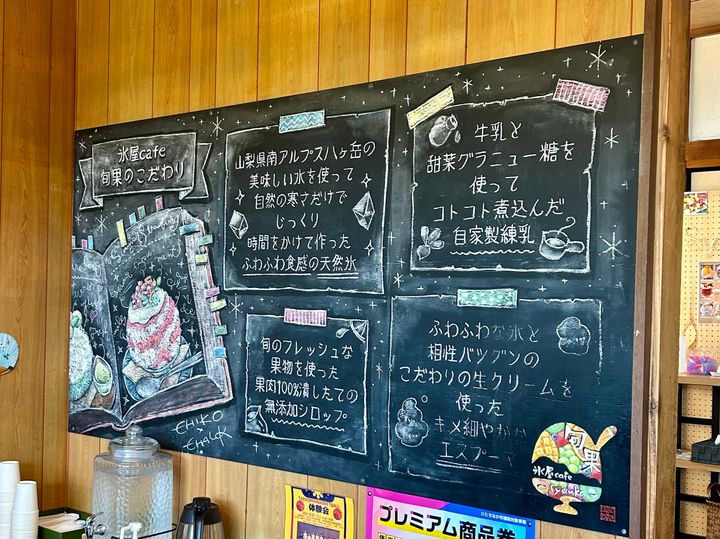 氷屋cafe
旬果のこだわり
山梨県南アルプス八ヶ岳の
美味しい水を使って
自然の寒さだけで
じっくり
時間をかけて作った
ふわふわ食感の天然氷
牛乳と
甜菜グラニュー糖を
使って
コトコト煮込んだ
自家製練乳
旬のフレッシュな
果物を使った
果肉100%潰したての
無添加シロップ
ふわふわな氷と
相性バツグンの
こだわりの生クリームを
使った
キメ細やかな
エスプーマ
CHIKO
CHALK
旬果
氷屋cafe
体験会
ひたちなか市
プレミアム商品券